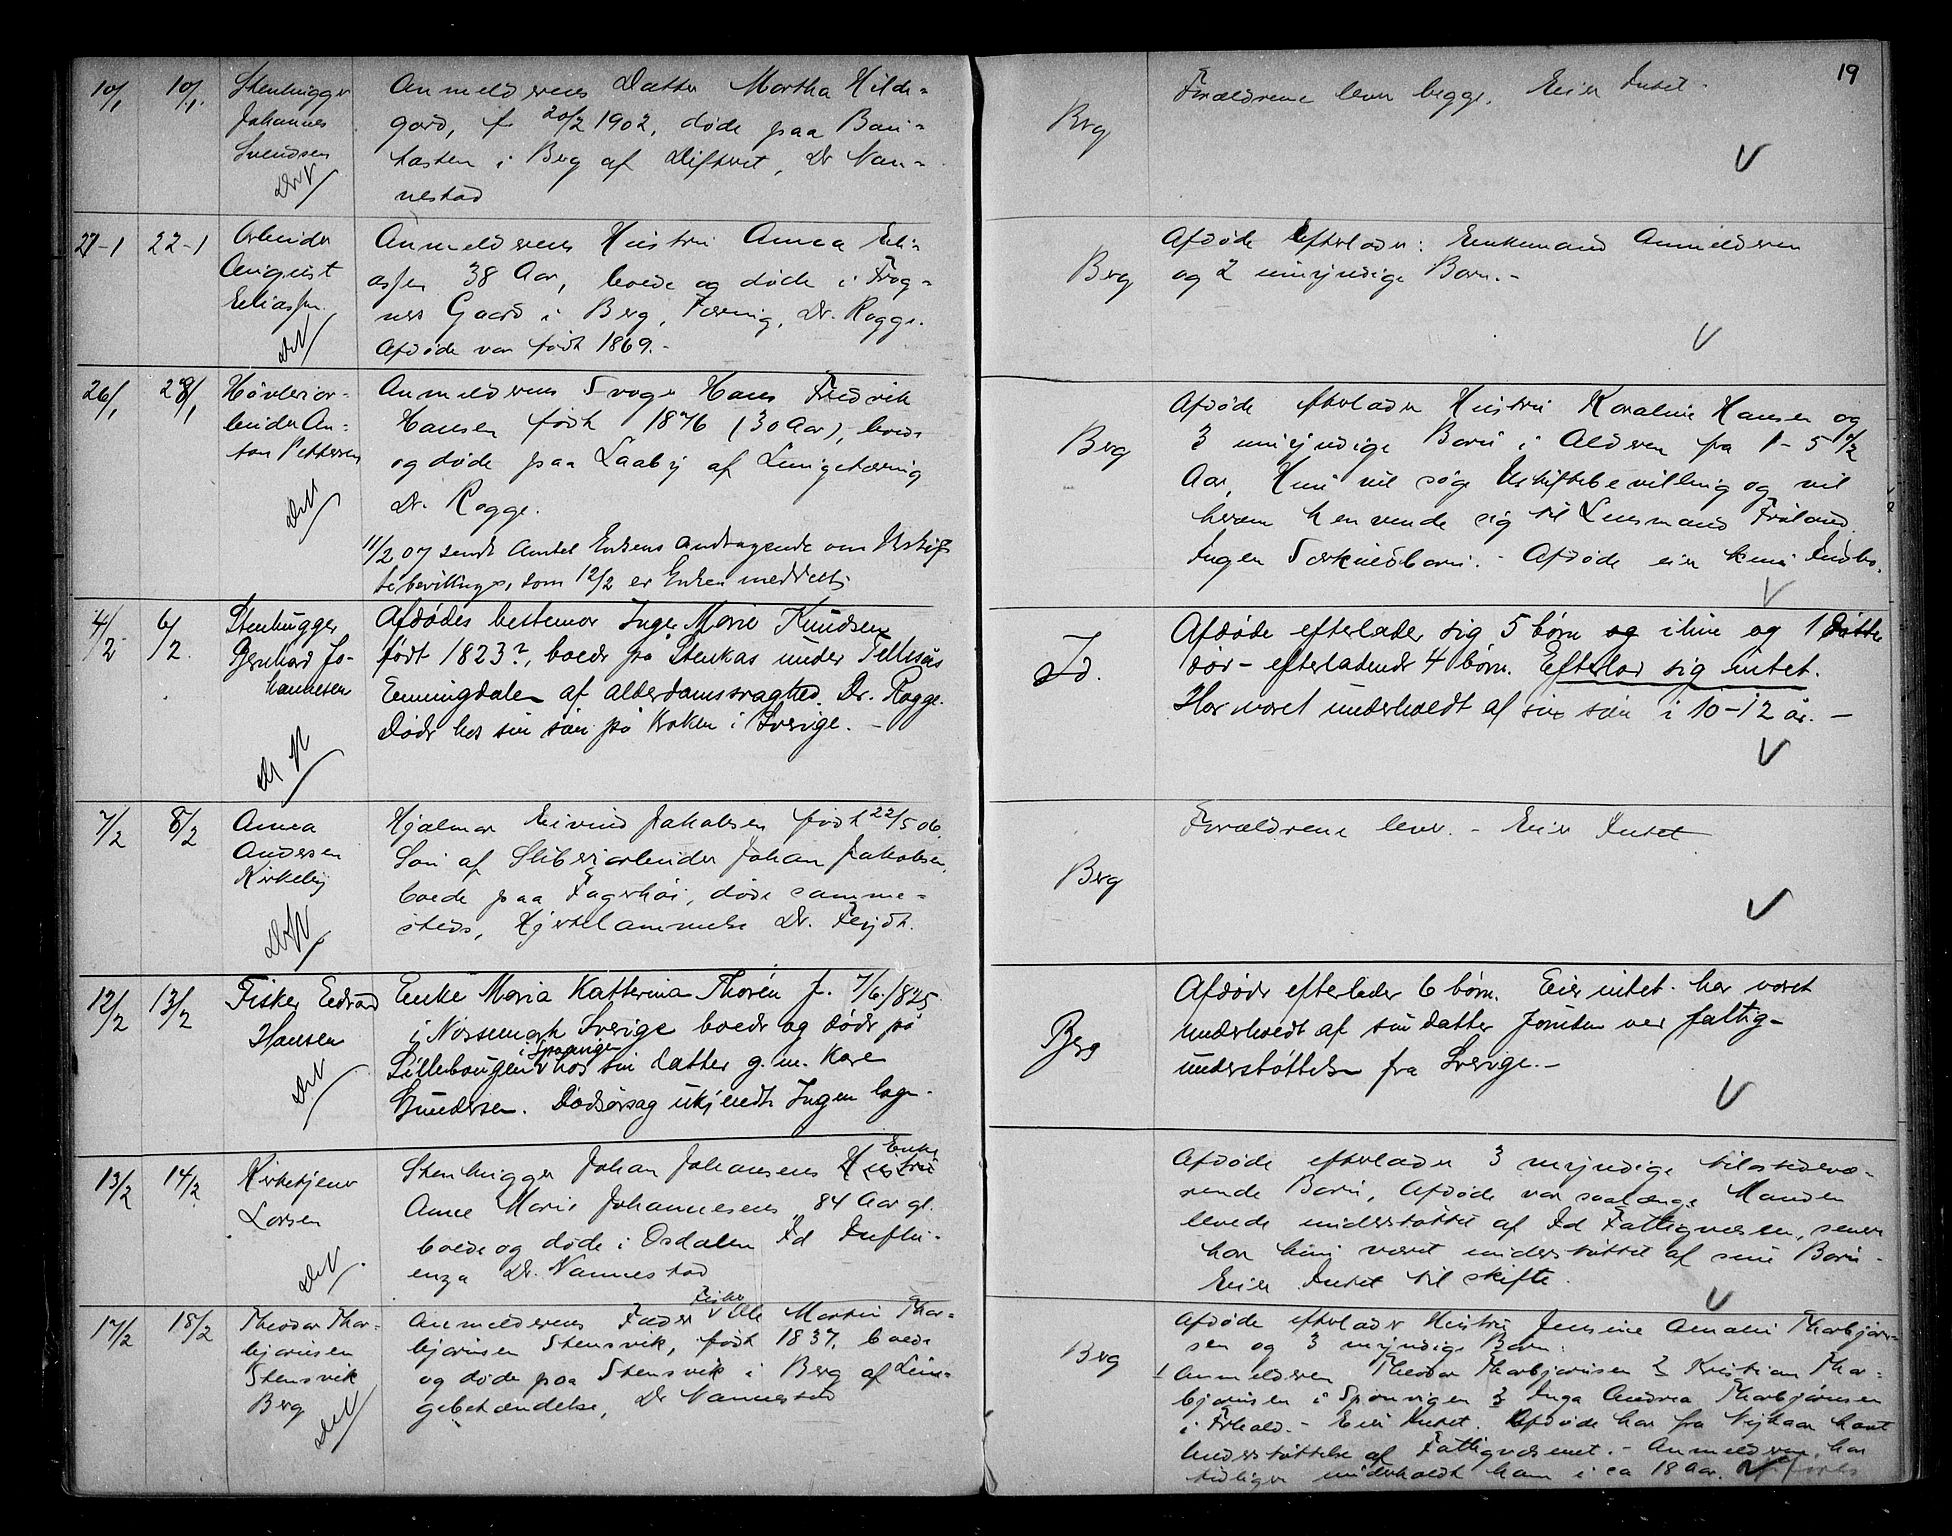 19
10/1 10/1. Stenhugger
Johannes
Svendsen
Anmelderens Datter Martha Hilde-
gard, f. 20/2 1902, døde paa Bau-
tasten i Berg af Difterit, Dr Nan-
nestad
Berg
Forældrene lever begge. Eier Intet.
V
27-1 22-1 Arbeider
August
Eliassen
Anmelderens Hustru Anna Eli-
assen 38 Aar, boede og døde i Frog-
ners Gaard i Berg, Tæring, Dr. Rogge.
Afdøde var født 1869.-
Berg
Afdøde efterlader: Enkemand Anmelderen
og 2 umyndige Børn.-
V
26/1 28/1 Høvleriar-
beider An-
ton Pettersen
Anmelderens Svoger Hans Fredrik
Hansen født 1876 (30 Aar), boede
og døde paa Laaby af Lungetæring
Dr. Rogge.
11/2 07 sendt Amtet Enkens Andragende om Uskif-
tebevilling, som 12/2 er Enken meddelt
Berg
Afdøde efterlader Hustru Karoline Hansen og
3 umyndige Børn i Alderen fra 1 - 5 1/2
Aar, Hun vil søge Uskiftebevilling og vil
herom henvende sig til Lensmand Frøland.
Ingen Særkuldbørn. - Afdøde eier kun Indbo.
V
4/2 6/2. Stenhugger
Bernhard Jo-
hannesen
Afdødes bestemor Inger Marie Knudsen
født 1823?, boede på Stenkas under
Enningdalen af alderdomssvaghed. Dr. Rogge.
Døde hos sin søn på Kroken i Sverige. -
Id.
Afdøde efterlader sig 5 børn og ilive og 1 datter
død - efterladende 4 børn. Efterlod sig intet.
Har været underholdt af sin søn i 10-12 år. -
V
7/2 8/2 Anna
Andersen
Kirkeby
Hjalmar Eivind Jakobsen født 22/5 06.
Søn af Sliberiarbeider Johan Jakobsen,
boede paa Fagerhøi, døde samme-
steds, Hjertelammelse Dr. Feydt.
Berg
Forældrene lever. - Eier Intet
V
12/2 13/2 Fisker Edvard
Hansen
Enke Maria Katterina Thorén f. 7/6 1825
i Nössemark Sverige boede og døde på
i Sponvigen
Lillebaugen v hos sin datter g. m. Kare
Gundersen. Dødsårsag ukjendt Ingen læge.
Berg
Afdøde efterlader 6 børn. Eier intet. har været
underholdt af sin datter foruten ved fattig-
understøttelse fra Sverige.-
V
13/2 14/2. Kirketjener
Larsen
Enke
Stenhugger Johan Johansens Hustru
Anne Marie Johannesens 84 Aar gl.
boede og døde i Osdalen Id Influ-
enza Dr. Nannestad
Afdøde efterlader 3 myndige tilstedevæ-
rende Børn, Afdøde var saalænge Manden
levede understøttet af Id Fattigvæsen, senere
har hun været understøttet af sine Børn.
Eier Intet til skifte.
V
17/2 18/2 Theodor Thor-
bjørnsen
Stensvik
Berg
Fisker
Anmelderens Fader v Ole Martin Thor-
bjørnsen Stensvik, født 1837, boede
og døde paa Stensvik i Berg af Lun-
gebetændelse, Dr Nannestad
Berg
Afdøde efterlader Hustru Jensine Amalie Thorbjørn-
sen og 3 myndige Børn:
1 Anmelderen Theodor Thorbjørnsen 2 Kristian Thor-
bjørnsen i Sponvigen 3 Inga Andrea Thorbjørnsen
i Frhald. - Eier Intet. Afdøde har fra Nytaar havt
Understøttelse af Fattigvæsenet. - Anmelderen har
tidligere underholdt ham i ca 18 Aar.